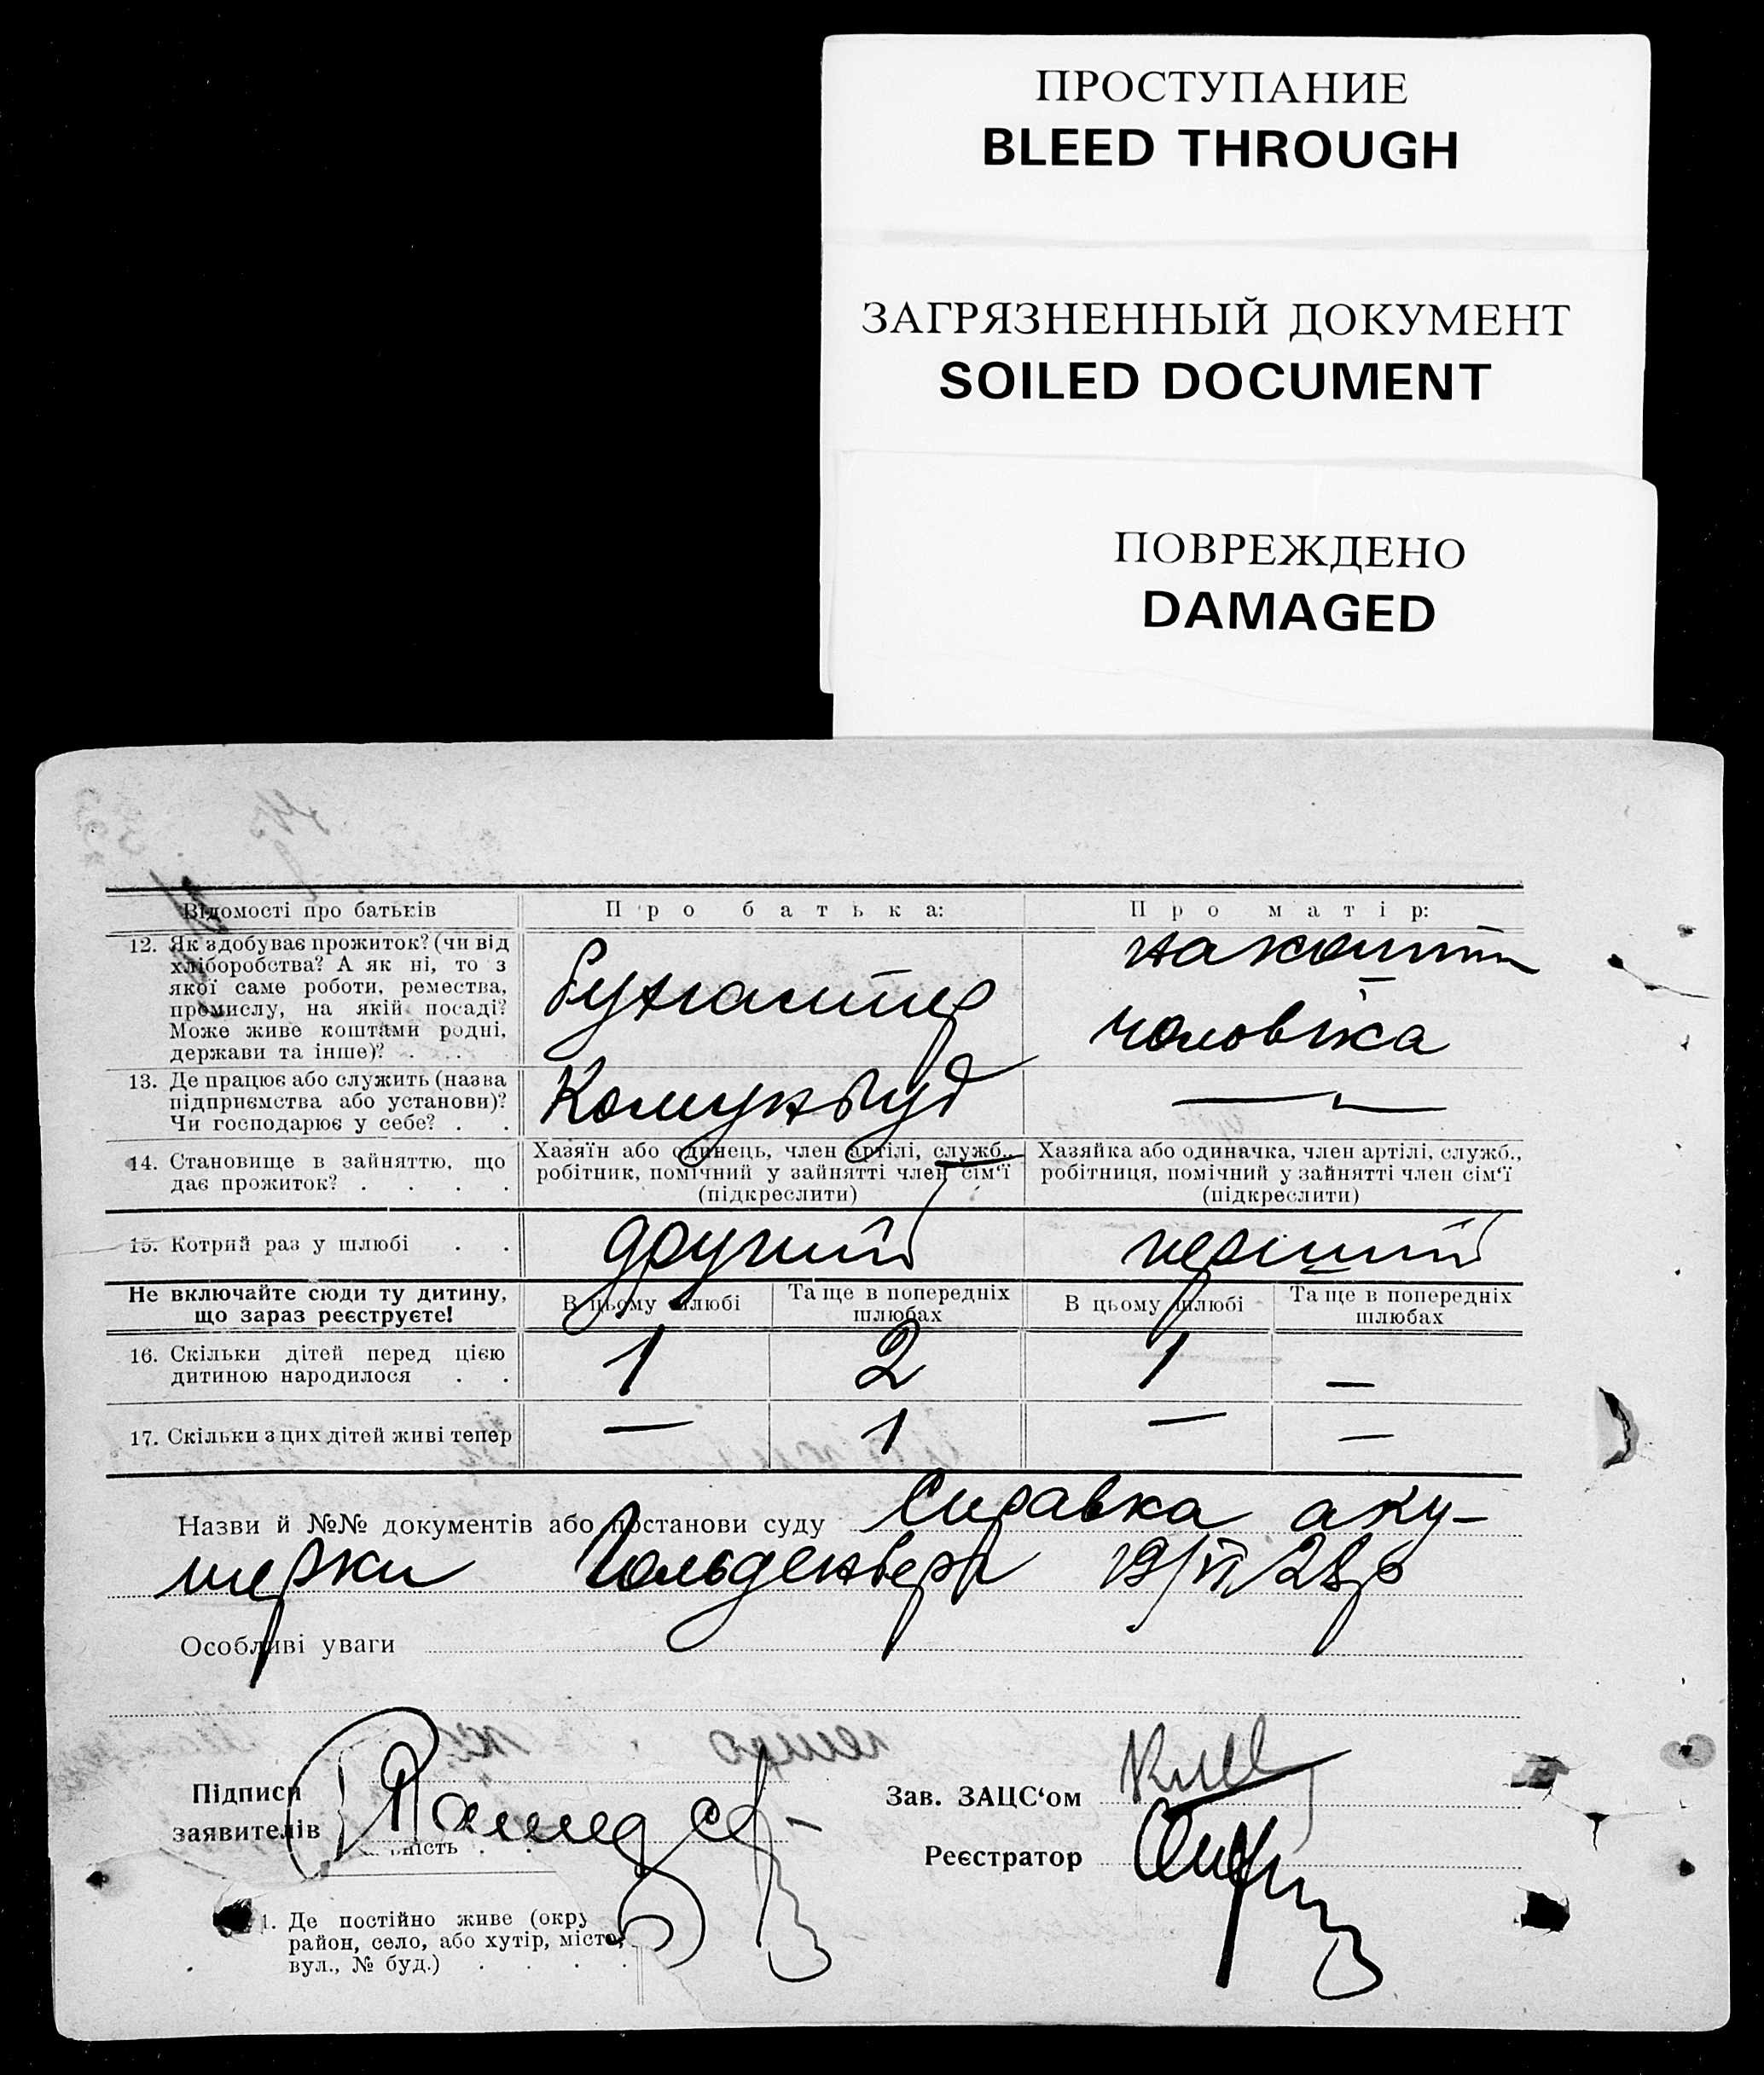 ПРОСТУПАНИЕ
BLEED THROUGH
ЗАГРЯЗНЕННЫЙ ДОКУМЕНТ
SOILED DOCUMENT
ПОВРЕЖДЕНО
DAMAGED
Відомості про батьків
Про батька:
Про матір:
12. Як здобуває прожиток? (чи від
хліборобства? А як ні, то з
якої саме роботи, ремества,
промислу, на якій посаді?
Може живе коштами родні,
держави та інше)? . . .
Бухгалтер
на кошти
чоловіка
13. Де працює або служить (назва
підприємства або установи)?
Чи господарює у себе? . .
Комунбуд
—〃—
14. Становище в зайняттю, що
дає прожиток? . . . .
Хазяїн або одинець, член артілі, служб.,
робітник, помічний у зайнятті член сім‘ї
(підкреслити)
Хазяйка або одиначка, член артілі, служб.,
робітниця, помічний у зайнятті член сім‘ї
(підкреслити)
15. Котрий раз у шлюбі . .
другий
перший
Не включайте сюди ту дитину,
що зараз реєструєте!
В цьому шлюбі
Та ще в попередніх
шлюбах
В цьому шлюбі
Та ще в попередніх
шлюбах
16. Скільки дітей перед цією
дитиною народилося . .
1
2
1
—
17. Скільки з цих дітей живі тепер
—
1
—
—
Назви й №№ документів або постанови суду Справка аку-
шерки Гольденберг 19/VI 28 р
Особливі уваги
Підписи
заявителів
Зав. ЗАЦС‘ом
Реєстратор
ність . .
1. Де постійно живе (окру
район, село, або хутір, місто,
вул., № буд.) . . . .